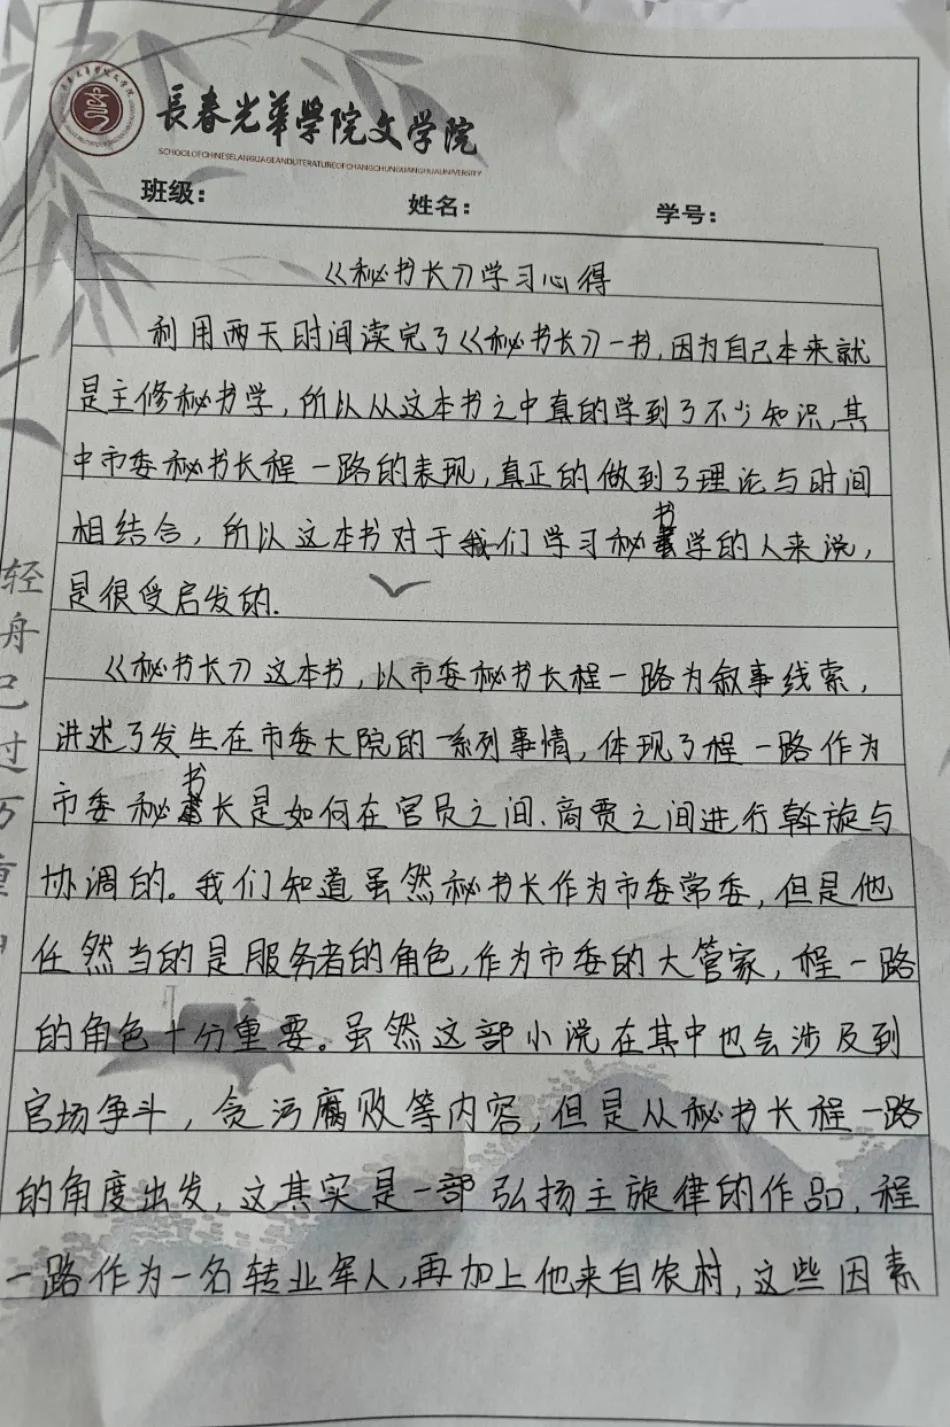 長春光華學院文学院
SCHOOLOFCHINESELANGUAGEANDLITERATUREOFCHANGCHUNGUANGHUAUNIVERSITY
班级：
姓名：
学号：
《秘书长》学习心得
利用两天时间读完了《秘书长》一书，因为自己本来就
是主修秘书学，所以从这本书之中真的学到了不少知识，其
中市委秘书长程一路的表现，真正的做到了理论与时间
相结合，所以这本书对于我们学习秘书学的人来说，
是很受启发的.
《秘书长》这本书，以市委秘书长程一路为叙事线索，
讲述了发生在市委大院的一系列事情，体现了程一路作为
市委秘书长是如何在官员之间、商贾之间进行斡旋与
协调的。我们知道虽然秘书长作为市委常委，但是他
任然当的是服务者的角色，作为市委的大管家，程一路
的角色十分重要。虽然这部小说在其中也会涉及到
官场争斗，贪污腐败等内容，但是从秘书长程一路
的角度出发，这其实是一部弘扬主旋律的作品，程
一路作为一名转业军人，再加上他来自农村，这些因素
轻舟已过万重